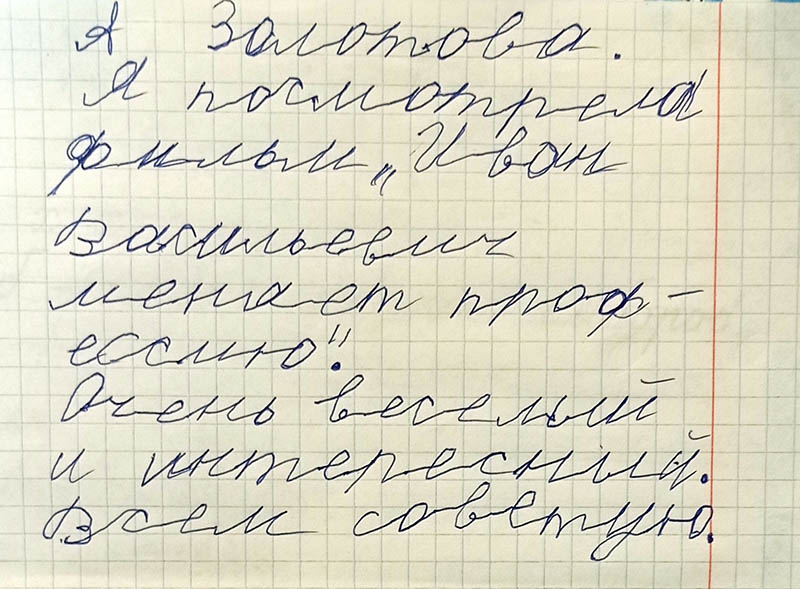 Я Золотова.
Я посмотрела
фильм „Иван
Васильевич
меняет проф-
ессию".
Очень веселый
и интересный.
Всем советую.